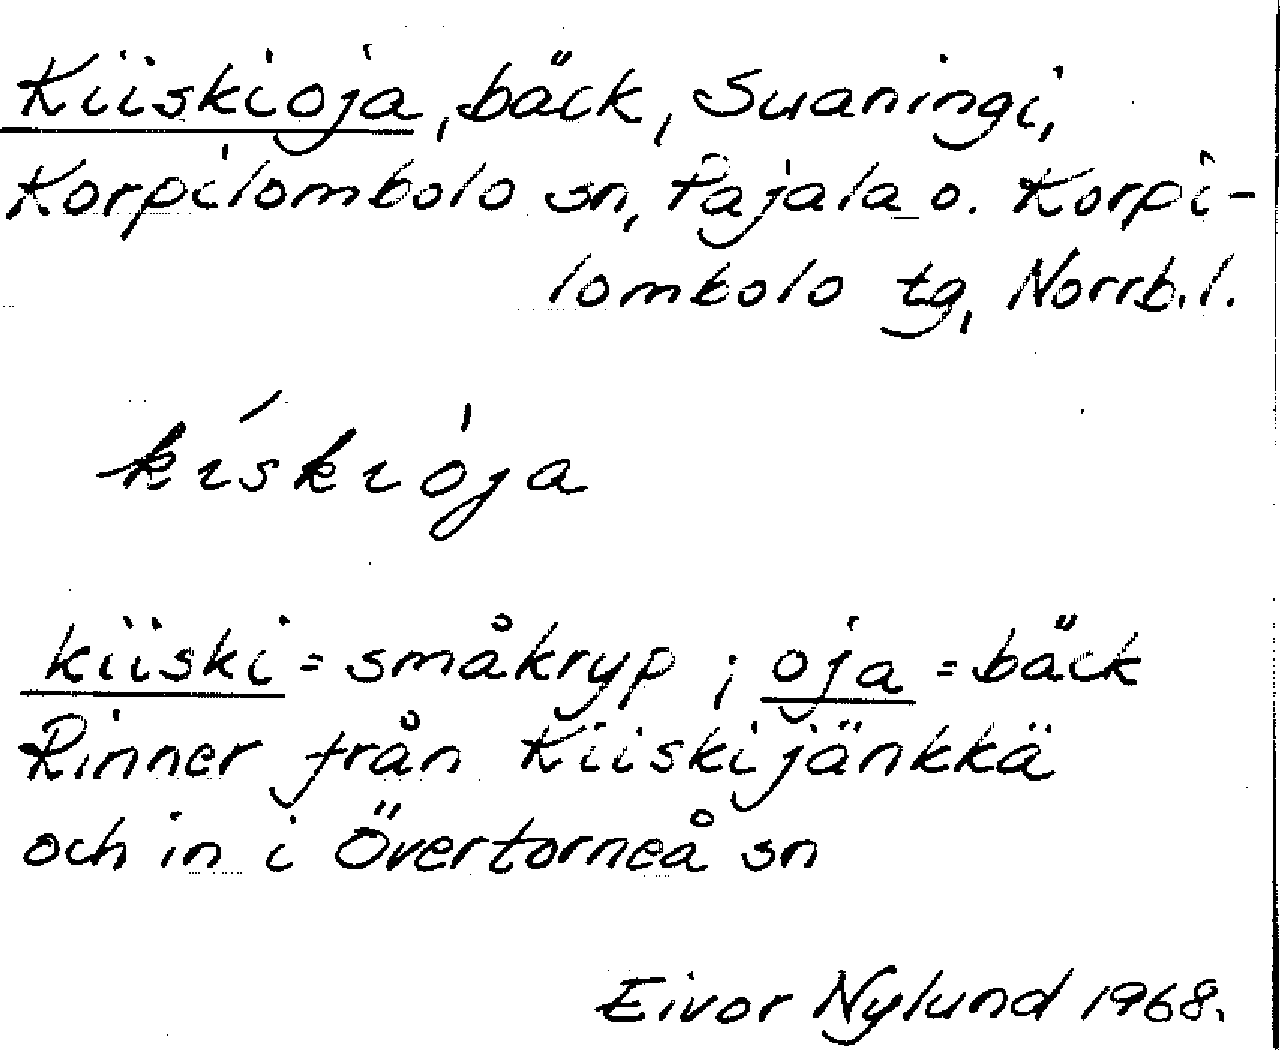 Kiiskioja, bäck, Suaningi,
Korpilombolo sn, Pajala o. Korpi-
lombolo tg, Norrb.l.
kı́skıòja
kiiski = småkryp ; oja = bäck
Rinner från Kiiskijänkkä
och in i Övertorneå sn
Eivor Nylund 1968.